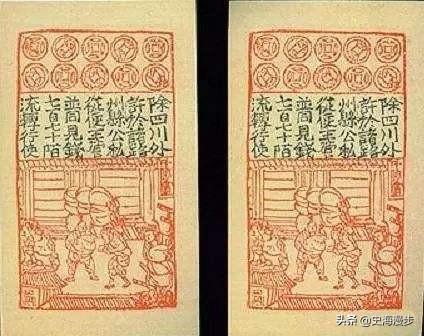 除四川外
許於諸路
州縣公私
從便主管
並同見錢
七百七十陌
流轉行使
除四川外
許於諸路
州縣公私
從便主管
並同見錢
七百七十陌
流轉行使
头条 @史海漫步